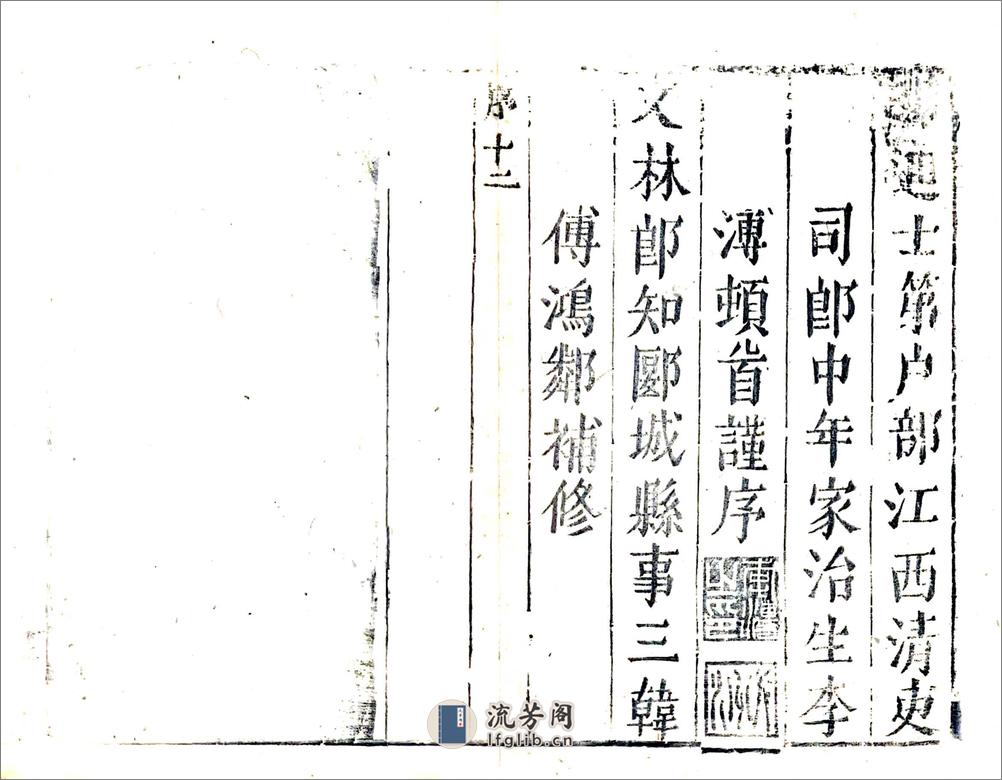 進士第户部江西清吏
司郎中年家治生李
溥頓首謹序
文林郎知郾城縣事三韓
傅鴻鄰補修
序 十二
流芳阁
lfglib.cn